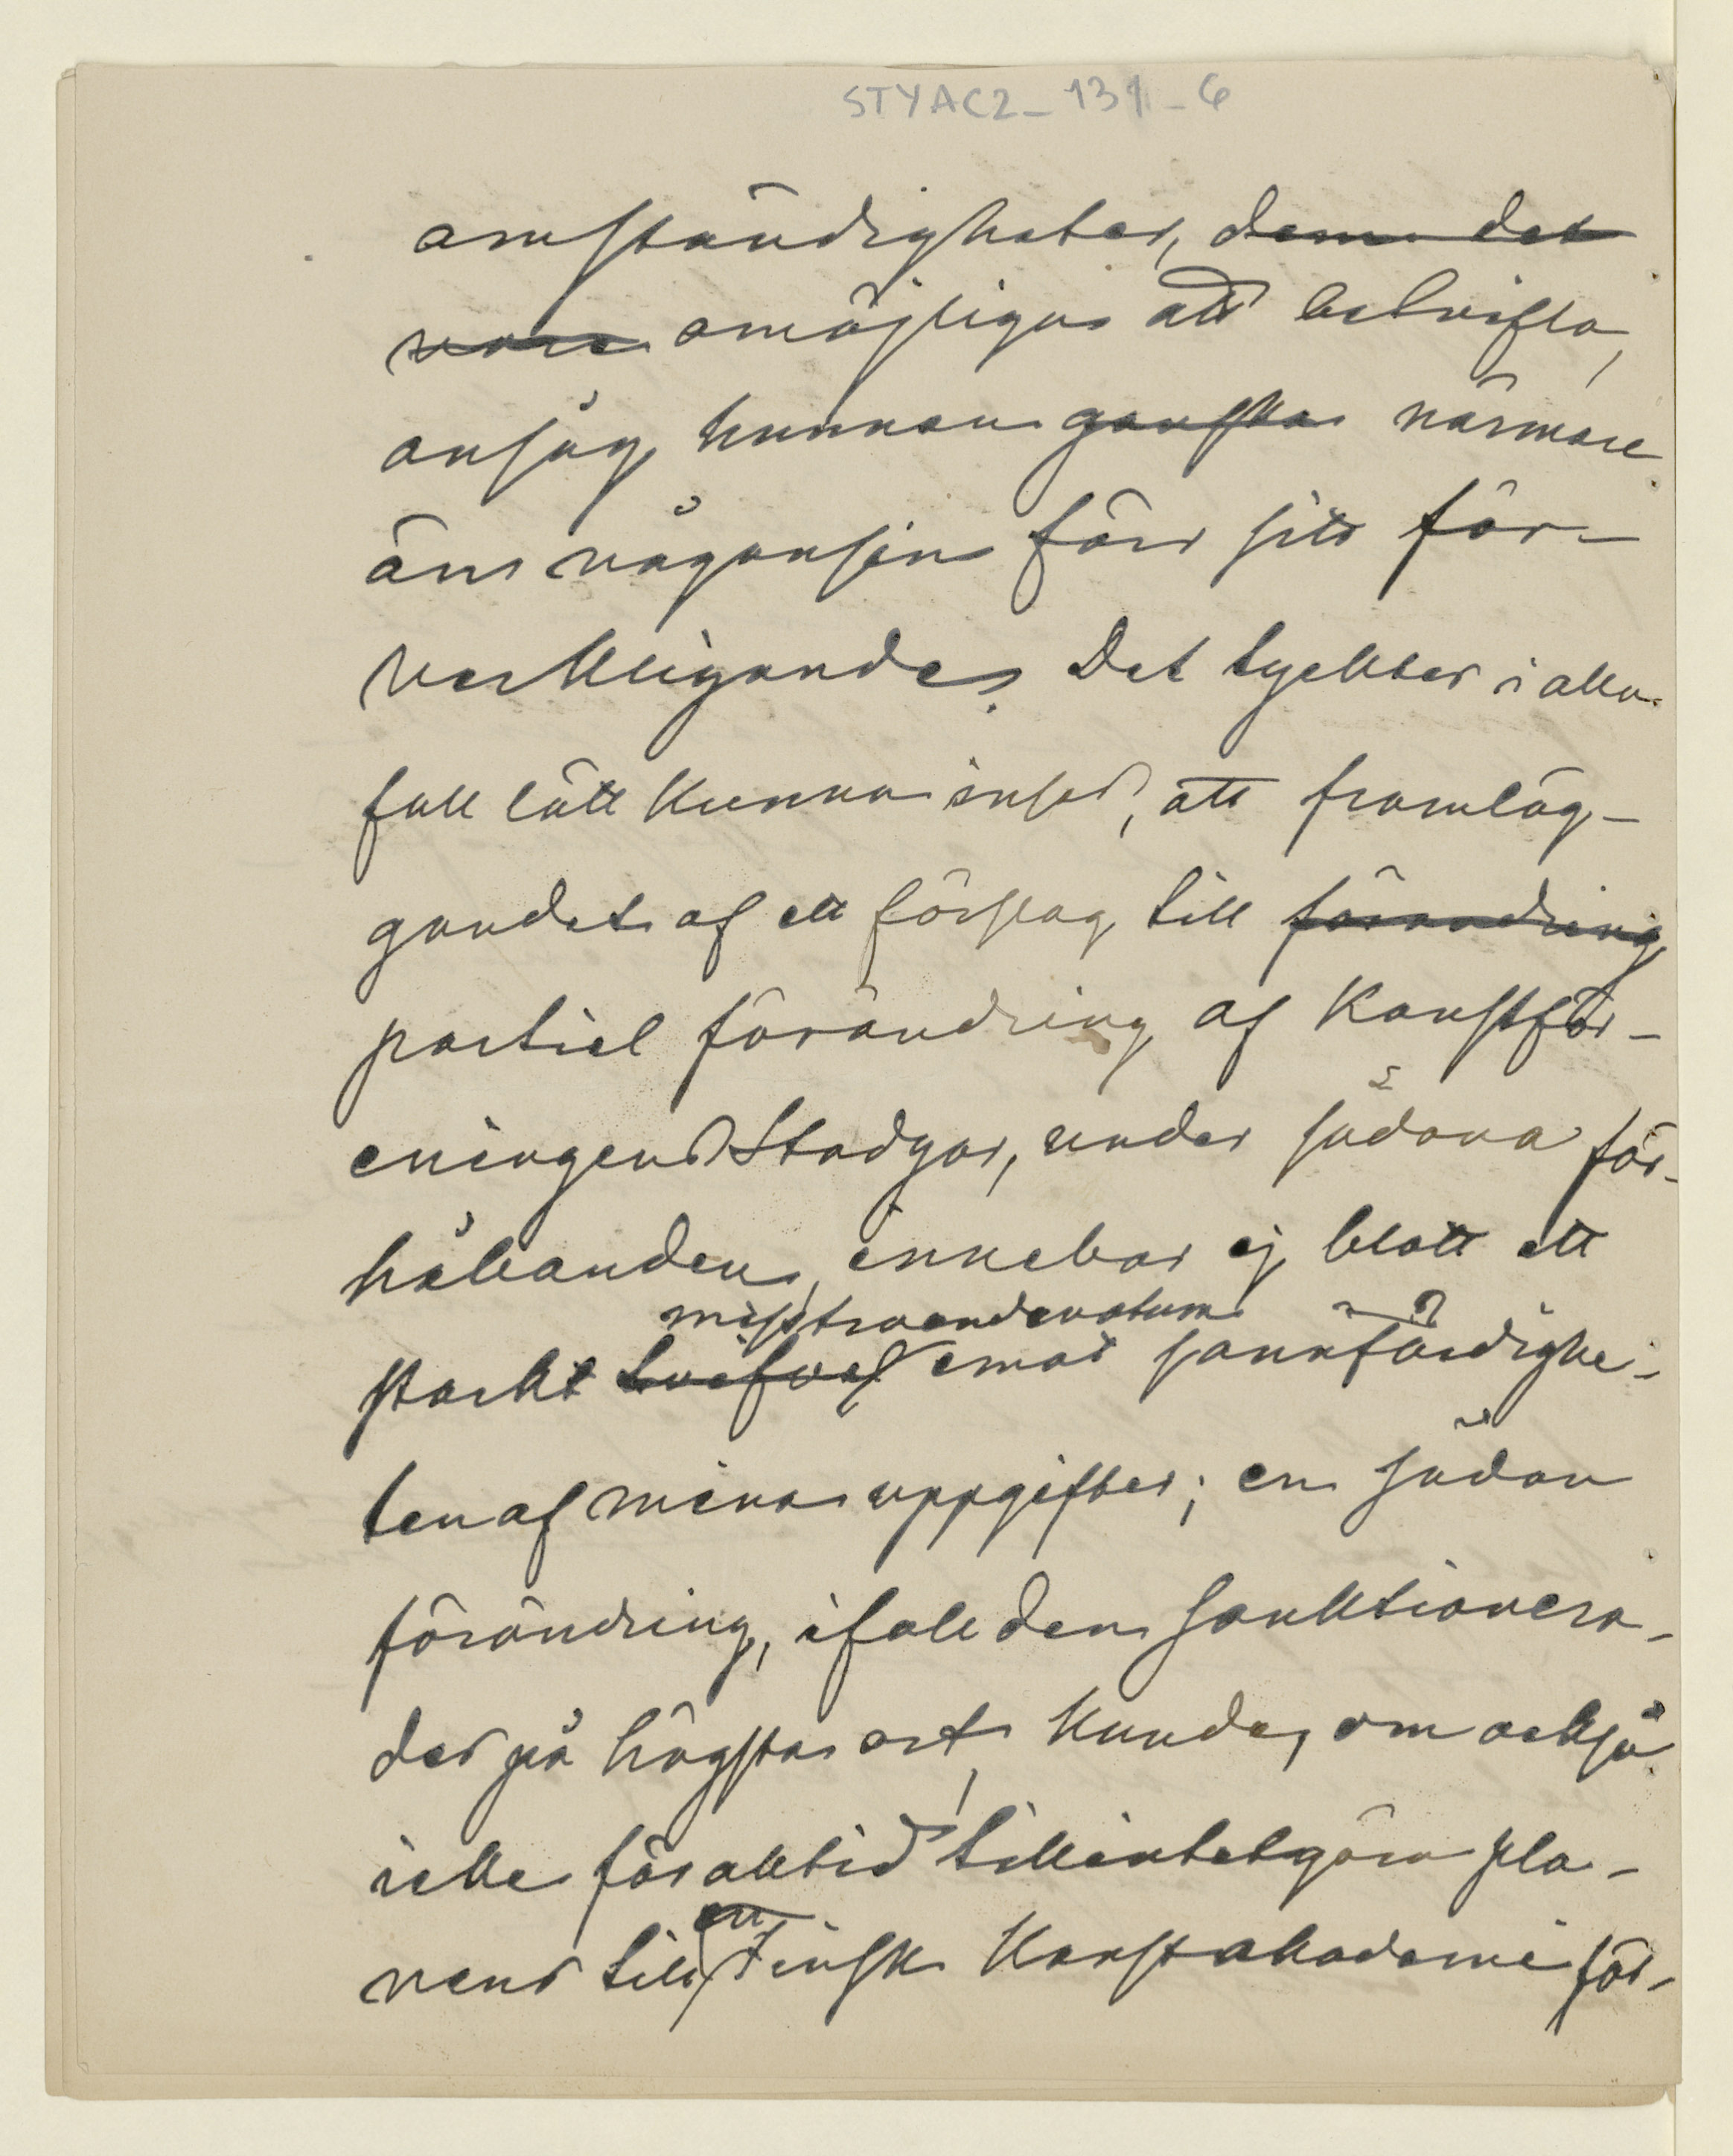 STYAC2_131_6
omständigheter, dem det
vore omöjligen att betvifla,
ansåg, kunnan ganska närmare
än någonsin förr sitt för-
verkligande. Det tyckter i alla
fall lätt kunna inses, att framläg-
gandet af ett förslag till förandring
partiel förändring af Konstför-
eningens Stadgar, under sådana för-
hållanden, innebar ej blott ett
misstroendevotum
starkt tvifvel emot sannfärdighe-
ten af mina uppgifter; en sådan
förändring, ifall den sanktionera-
des på högsta ort, kunde, om också
icke för alltid tillintetgöra pla-
en
nen till Finsk Konstakademi för-